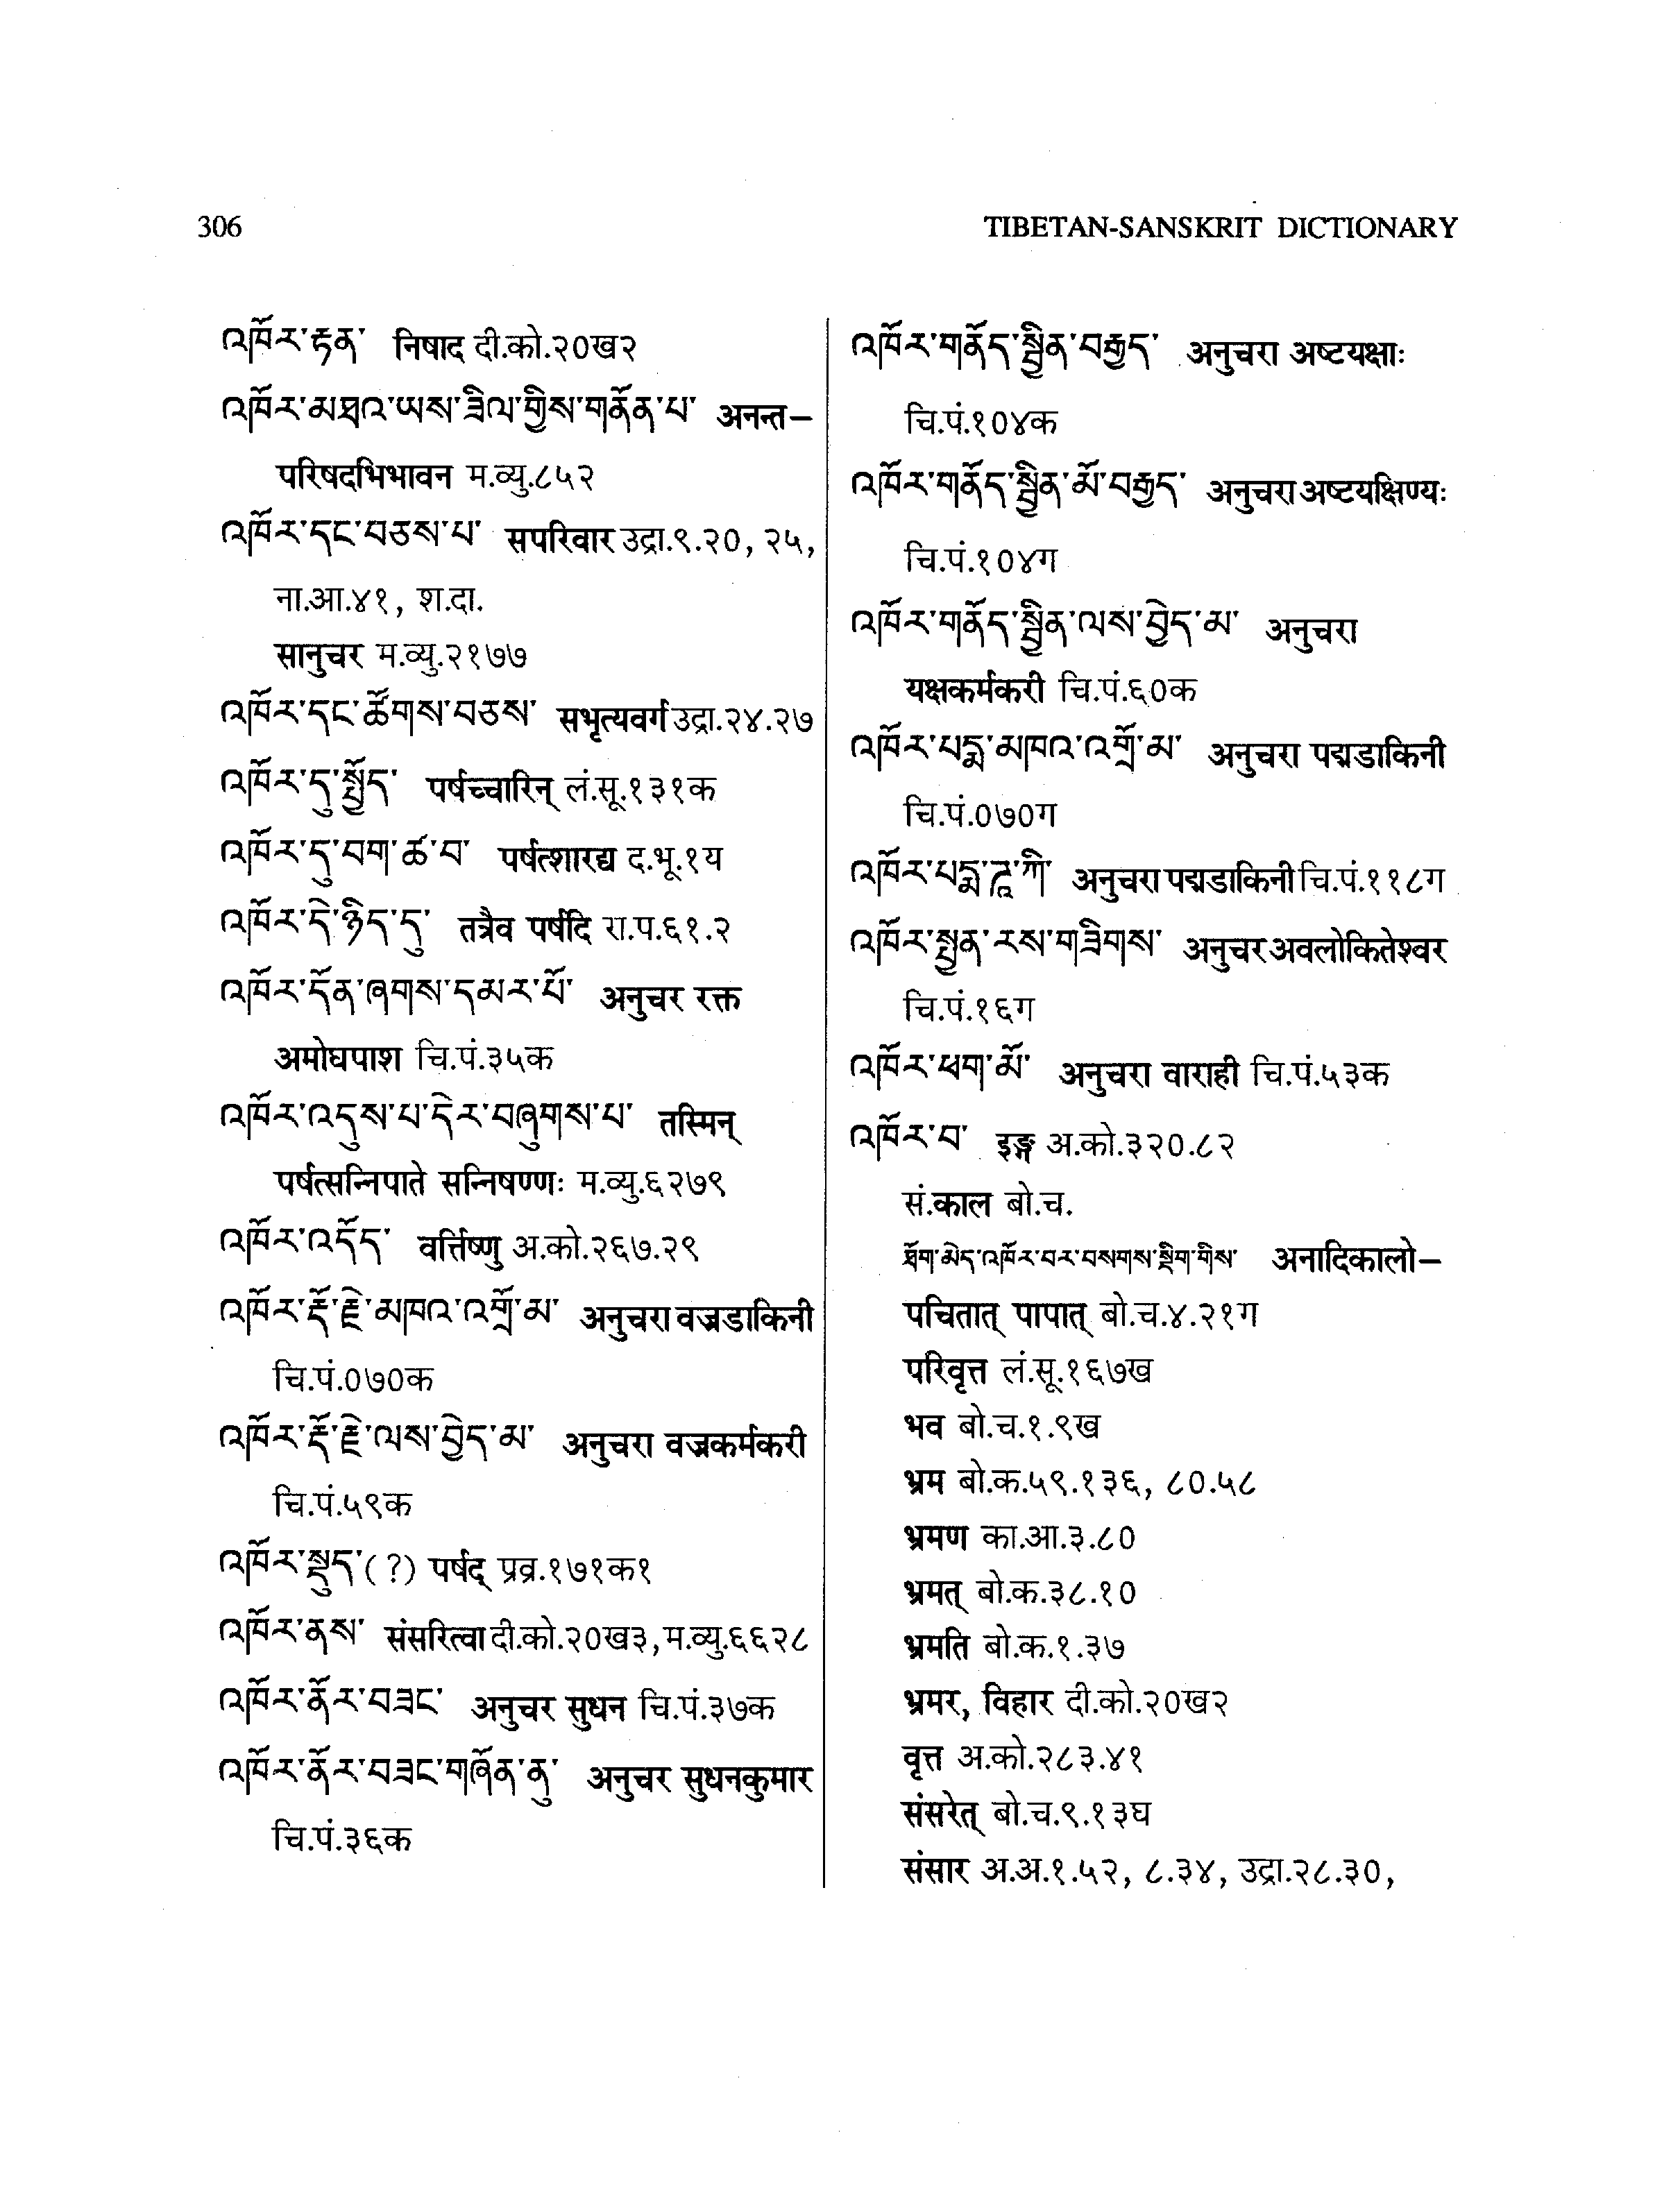 306
TIBETAN-SANSKRIT DICTIONARY
འཁོར་རྟན་ निषाद दी.को.२०ख२
འཁོར་མཐའ་ཡས་ཟིལ་གྱིས་གནོན་པ་ अनन्त–
परिषदभिभावन म.व्यु.८५२
འཁོར་དང་བཅས་པ་ सपरिवार उद्रा.९.२०, २५,
ना.आ.४१, श.दा.
सानुचर म.व्यु.२१७७
འཁོར་དང་ཚོགས་བཅས་ सभृत्यवर्ग उद्रा.२४.२७
འཁོར་དུ་སྤྱོད་ पर्षच्चारिन् लं.सू.१३१क
འཁོར་དུ་བག་ཚ་བ་ पर्षत्शारद्य द.भू.१य
འཁོར་དེ་ཉིད་དུ་ तत्रैव पर्षदि रा.प.६१.२
འཁོར་དོན་ཞགས་དམར་པོ་ अनुचर रक्त
अमोघपाश चि.पं.३५क
འཁོར་འདུས་པ་དེར་བཞུགས་པ་ तस्मिन्
पर्षत्सन्निपाते सन्निषण्णः म.व्यु.६२७९
འཁོར་འདོད་ वर्त्तिष्णु अ.को.२६७.२९
འཁོར་རྡོ་རྗེ་མཁའ་འགྲོ་མ་ अनुचरा वज्रडाकिनी
चि.पं.०७०क
འཁོར་རྡོ་རྗེ་ལས་བྱེད་མ་ अनुचरा वज्रकर्मकरी
चि.पं.५९क
འཁོར་སྡུད་(?) पर्षद् प्रव्र.१७१क१
འཁོར་ནས་ संसरित्वा दी.को.२०ख३, म.व्यु.६६२८
འཁོར་ནོར་བཟང་ अनुचर सुधन चि.पं.३७क
འཁོར་ནོར་བཟང་གཞོན་ནུ་ अनुचर सुधनकुमार
चि.पं.३६क
འཁོར་གནོད་སྦྱིན་བརྒྱད་ अनुचरा अष्टयक्षाः
चि.पं.१०४क
འཁོར་གནོད་སྦྱིན་མོ་བརྒྱད་ अनुचरा अष्टयक्षिण्यः
चि.पं.१०४ग
འཁོར་གནོད་སྦྱིན་ལས་བྱེད་མ་ अनुचरा
यक्षकर्मकरी चि.पं.६०क
འཁོར་པདྨ་མཁའ་འགྲོ་མ་ अनुचरा पद्मडाकिनी
चि.पं.०७०ग
འཁོར་པདྨ་ཌཱ་ཀི་ अनुचरा पद्मडाकिनी चि.पं.११८ग
འཁོར་སྤྱན་རས་གཟིགས་ अनुचर अवलोकितेश्वर
चि.पं.१६ग
འཁོར་ཕག་མོ་ अनुचरा वाराही चि.पं.५३क
འཁོར་བ་ इङ्ग अ.को.३२०.८२
सं.काल बो.च.
ཐོག་མེད་འཁོར་བར་བསགས་སྡིག་གིས་ अनादिकालो–
पचितात् पापात् बो.च.४.२१ग
परिवृत्त लं.सू.१६७ख
भव बो.च.१.९ख
भ्रम बो.क.५९.१३६, ८०.५८
भ्रमण का.आ.३.८०
भ्रमत् बो.क.३८.१०
भ्रमति बो.क.१.३७
भ्रमर, विहार दी.को.२०ख२
वृत्त अ.को.२८३.४१
संसरेत् बो.च.९.१३घ
संसार अ.अ.१.५२, ८.३४, उद्रा.२८.३०,